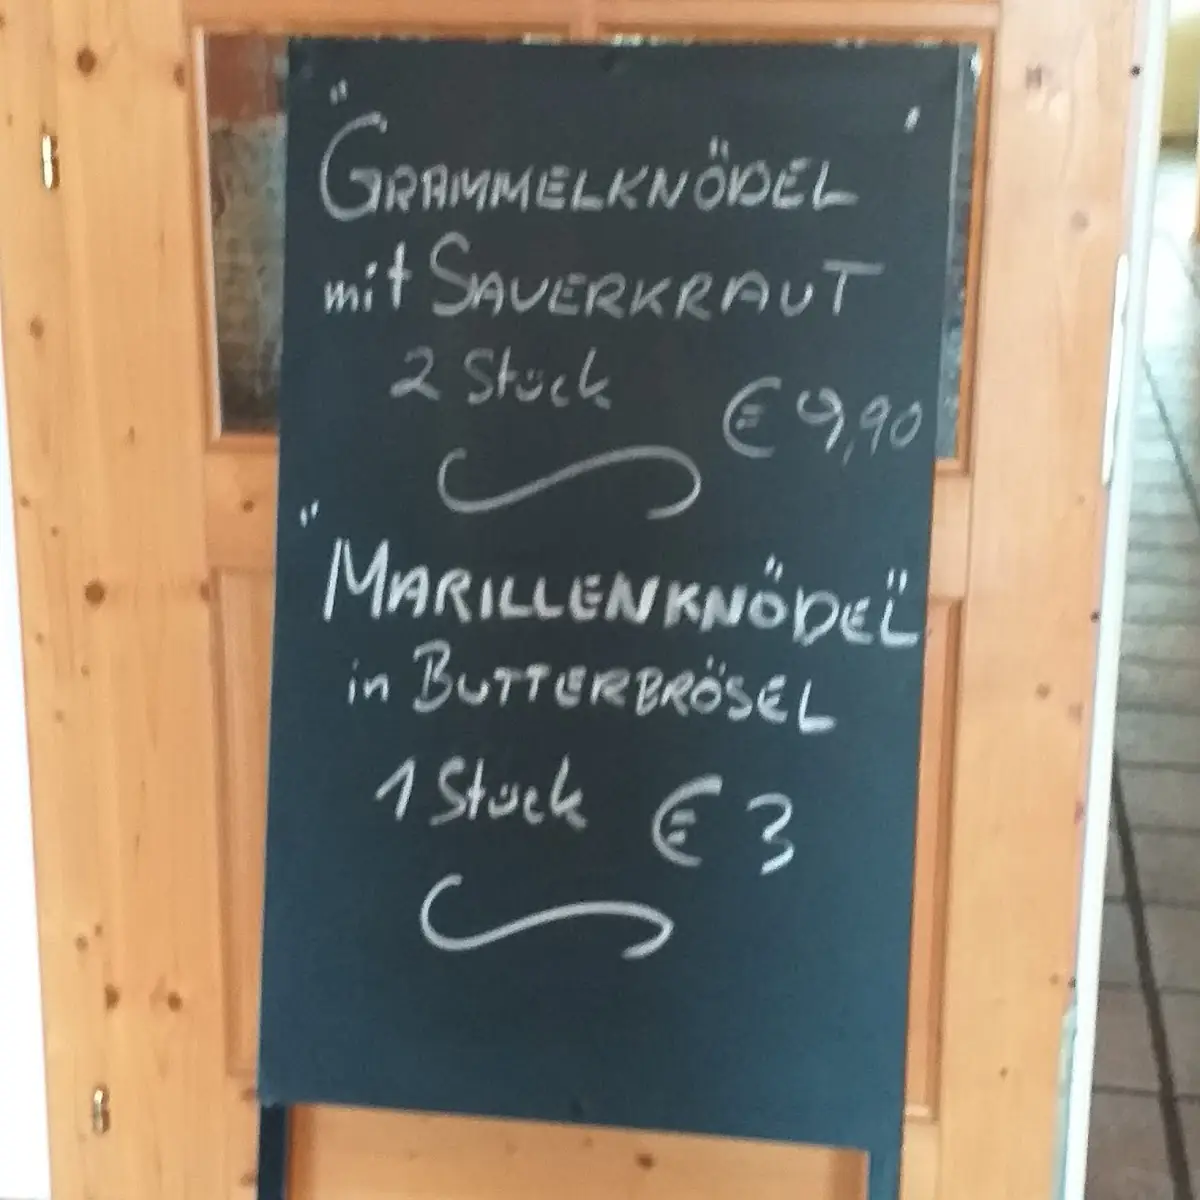 "GRAMMELKNÖDEL"
mit SAUERKRAUT
2 Stück
€ 9,90
"MARILLENKNÖDEL"
in BUTTERBRÖSEL
1 Stück € 3